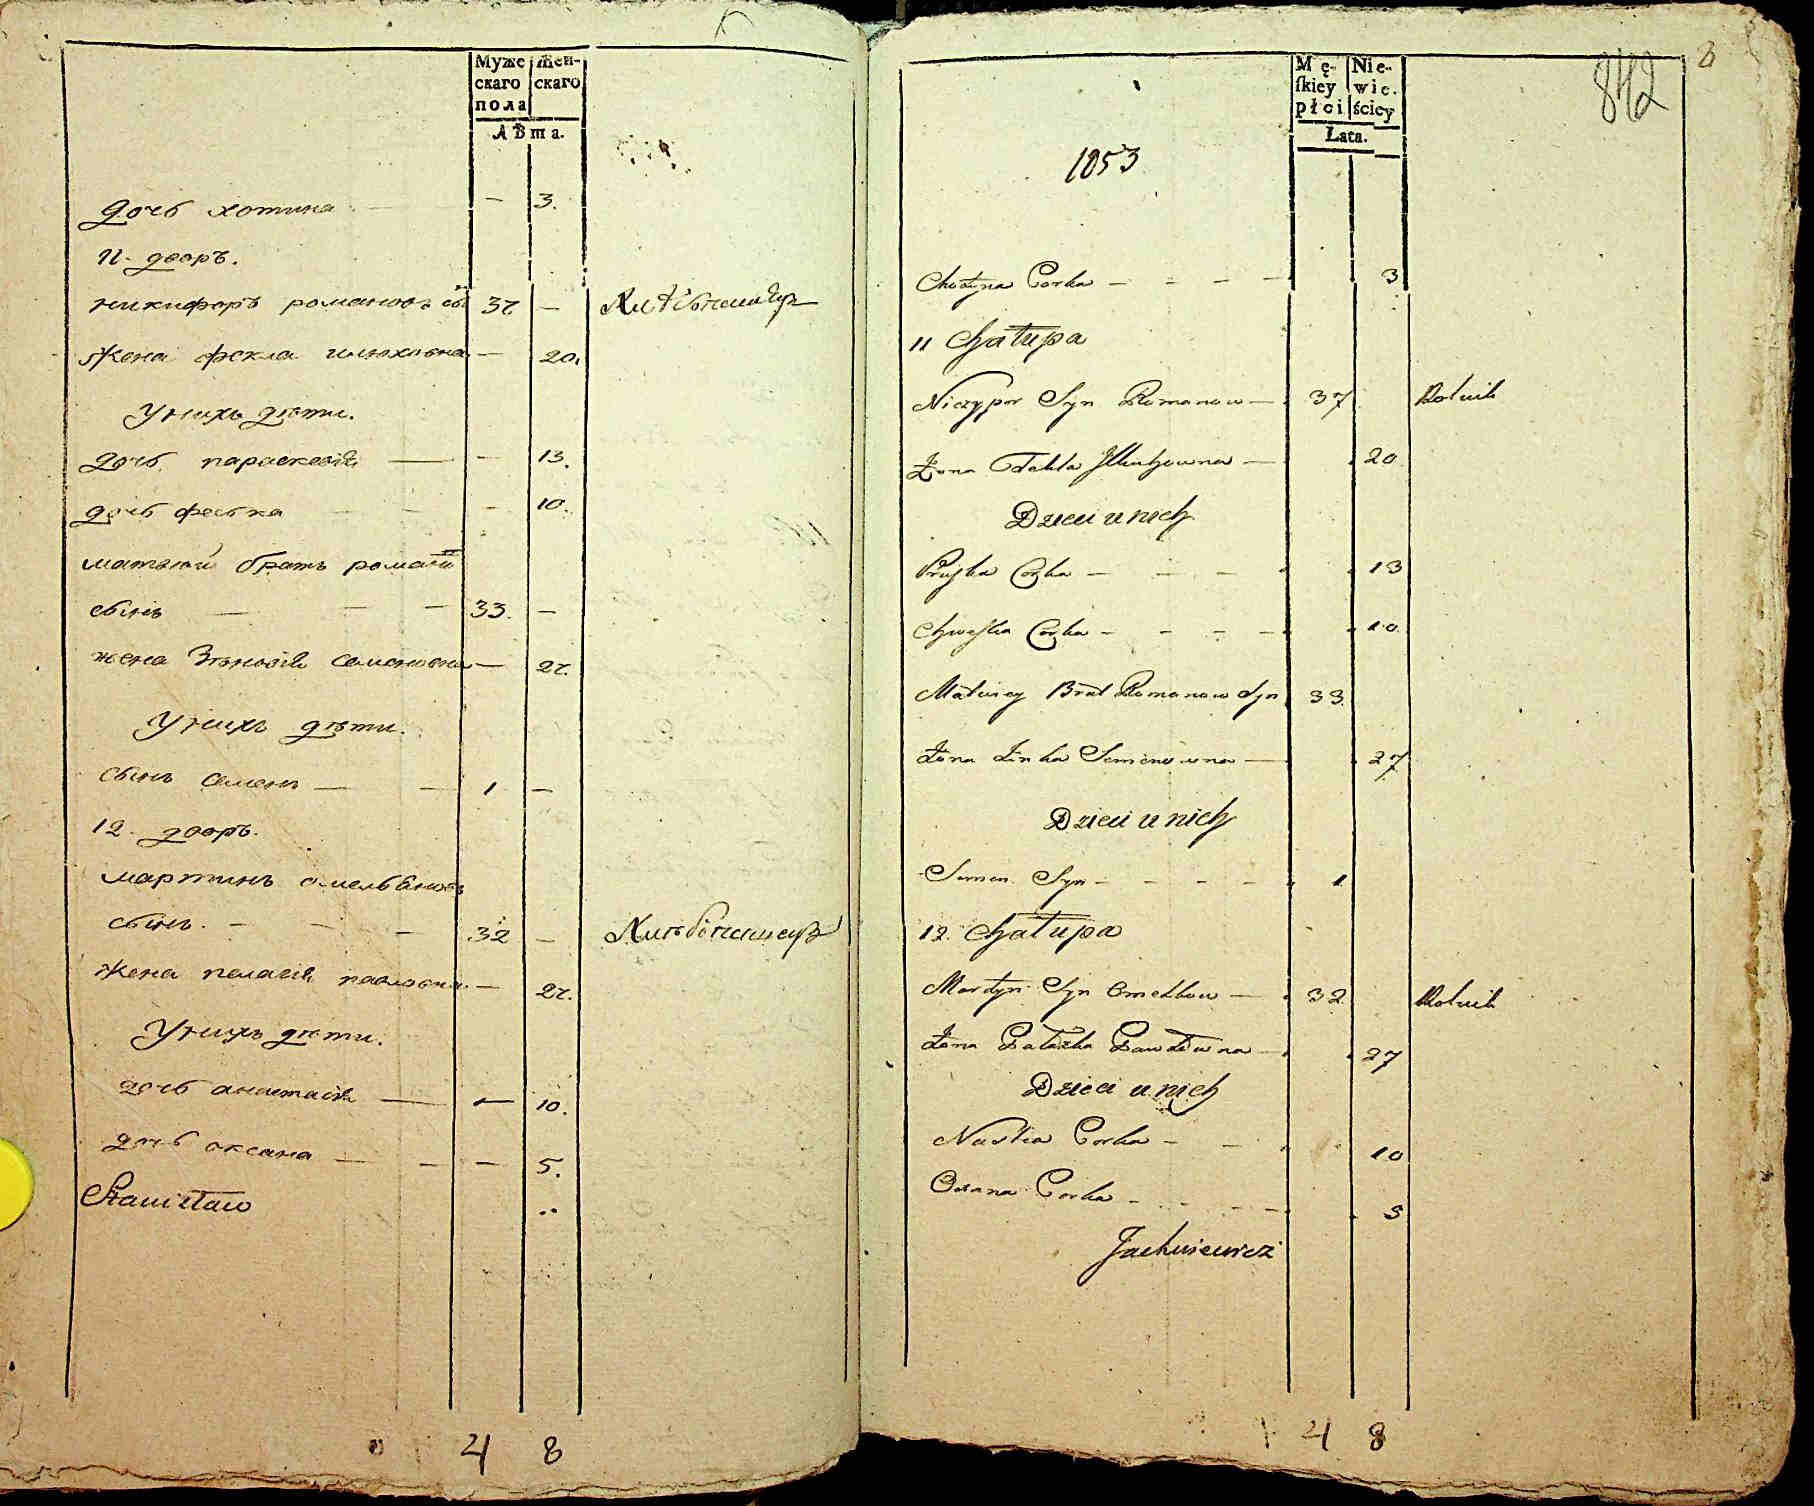 Муже
скаго
пола
Жен-
скаго
Лѣта.
дочь хотина — — 3.
11. дворъ.
никифоръ романовъ сы 37 — Хлѣбопашецъ
жена фекла илюховна — 20.
У нихъ дѣти.
дочь параскевія — — 13.
дочь феська — 10.
матвѣй братъ романо
сынъ — 33. —
жена Зѣновія семеновна — 27.
У нихъ дѣти.
сынъ семенъ — 1 —
12. дворъ.
мартинъ омельяновъ
сынъ. — 32 — Хлѣбопашецъ
жена пелагія павловна — 27.
У нихъ дѣти.
дочь анастасія — — 10.
дочь оксана — — 5.
Stanisław
4 8
842
Mę-
ſkiey
płci
Nie-
wie.
ściey
Lata.
1853
Chotyna Corka — — — — 3
11 Chałupa
Niczypor Syn Romanow — 37 Rolnik
Żona Tekla Iluchowna — 20
Dzieci u nich
Pruſka Corka — — — 13
Chweſka Corka — — — — 10
Matwiey Brat Romanow Syn 33.
Żona Zinka Semenowna — 27
Dzieci u nich
Semen Syn — — — — 1
12. Chałupa
Martyn Syn Omelkow — 32 Rolnik
Żona Pałażka Pawłowna — 27
Dzieci u nich
Nastia Corka — — 10
Oxana Corka — — — — 5
Jachniewicz
4 8